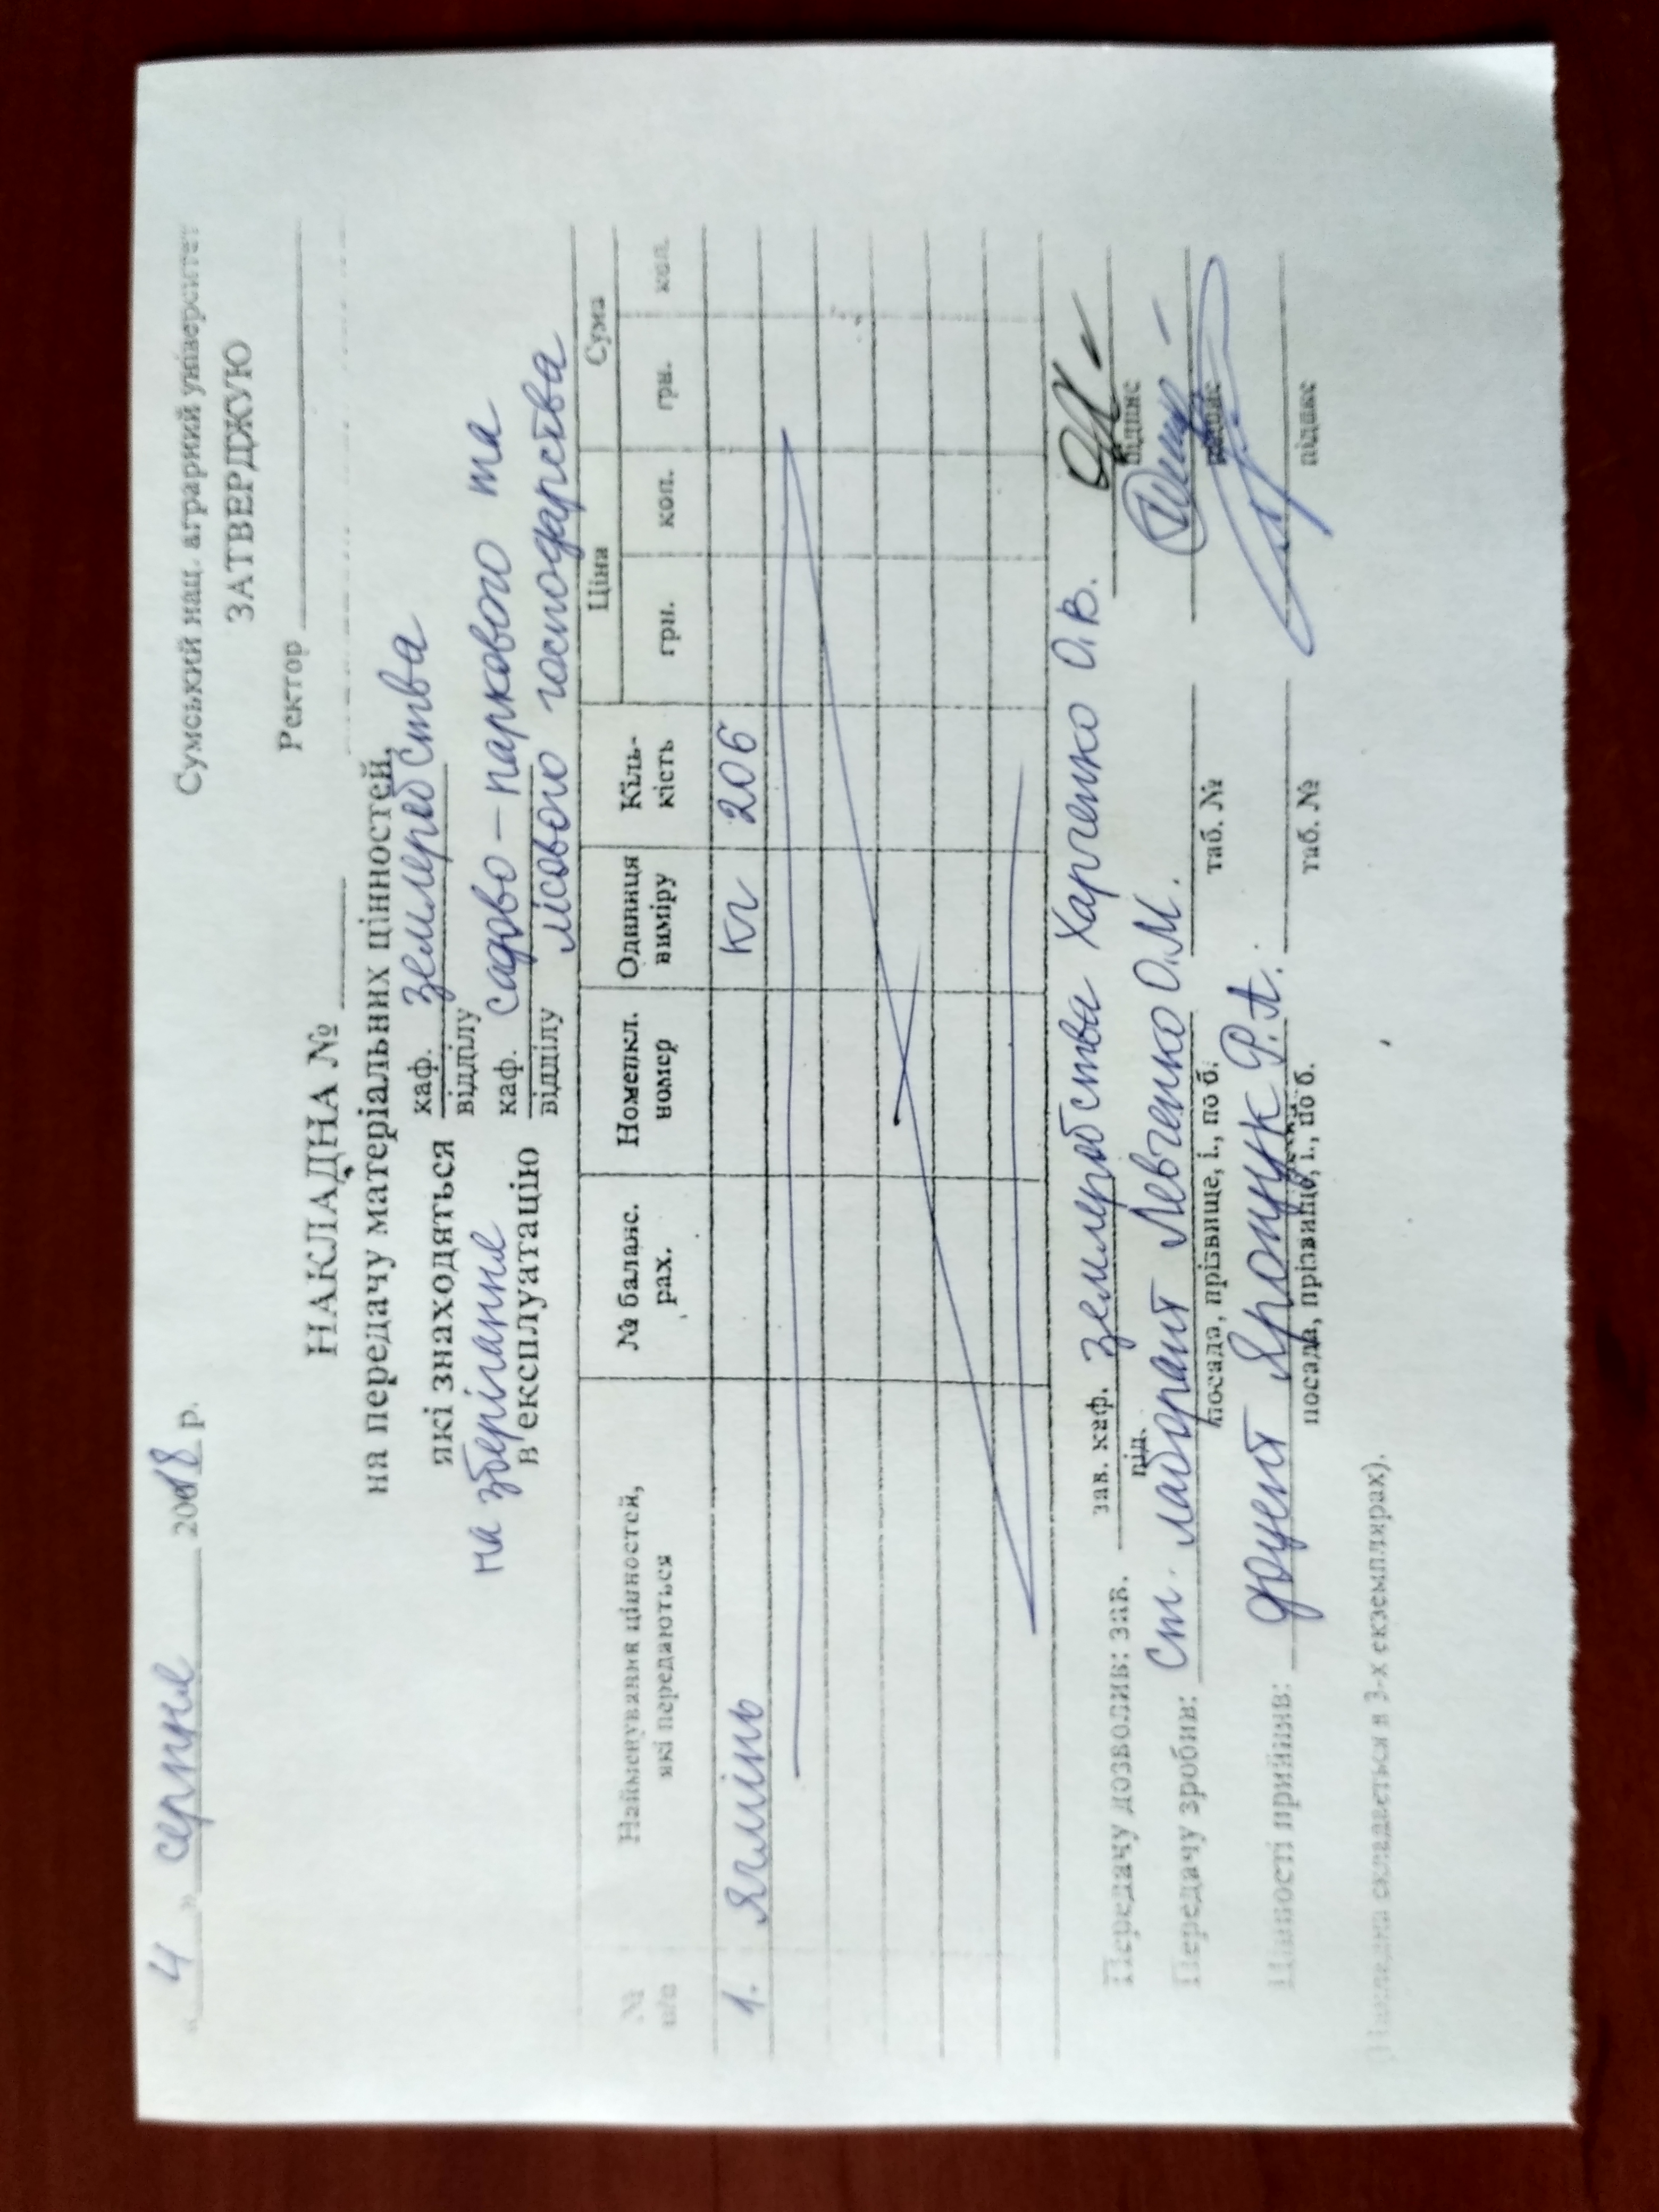 « 4 » серпня 2018 р.
Сумський нац. аграрний університет
ЗАТВЕРДЖУЮ
Ректор
НАКЛАДНА №
на передачу матеріальних цінностей,
які знаходяться каф. землеробства
відділу
на зберігання каф. садово-паркового та
в експлуатацію відділу лісового господарства
№ п/п Найменування цінностей, які передаються № баланс. рах. Номенкл. номер Одиниця виміру Кіль-кість Ціна Сума
грн. коп. грн. коп.
1. Ячмінь кг 206
Передачу дозволив: зав. зав. каф. землеробства Харченко О.В.
від. підпис
Передачу зробив: ст. лаборант Левченко О.М.
посада, прізвище, і., по б. таб. № підпис
Цінності прийняв: доцент Ярощук Р.А.
посада, прізвище, і., по б. таб. № підпис
(Накладна складається в 3-х екземплярах).